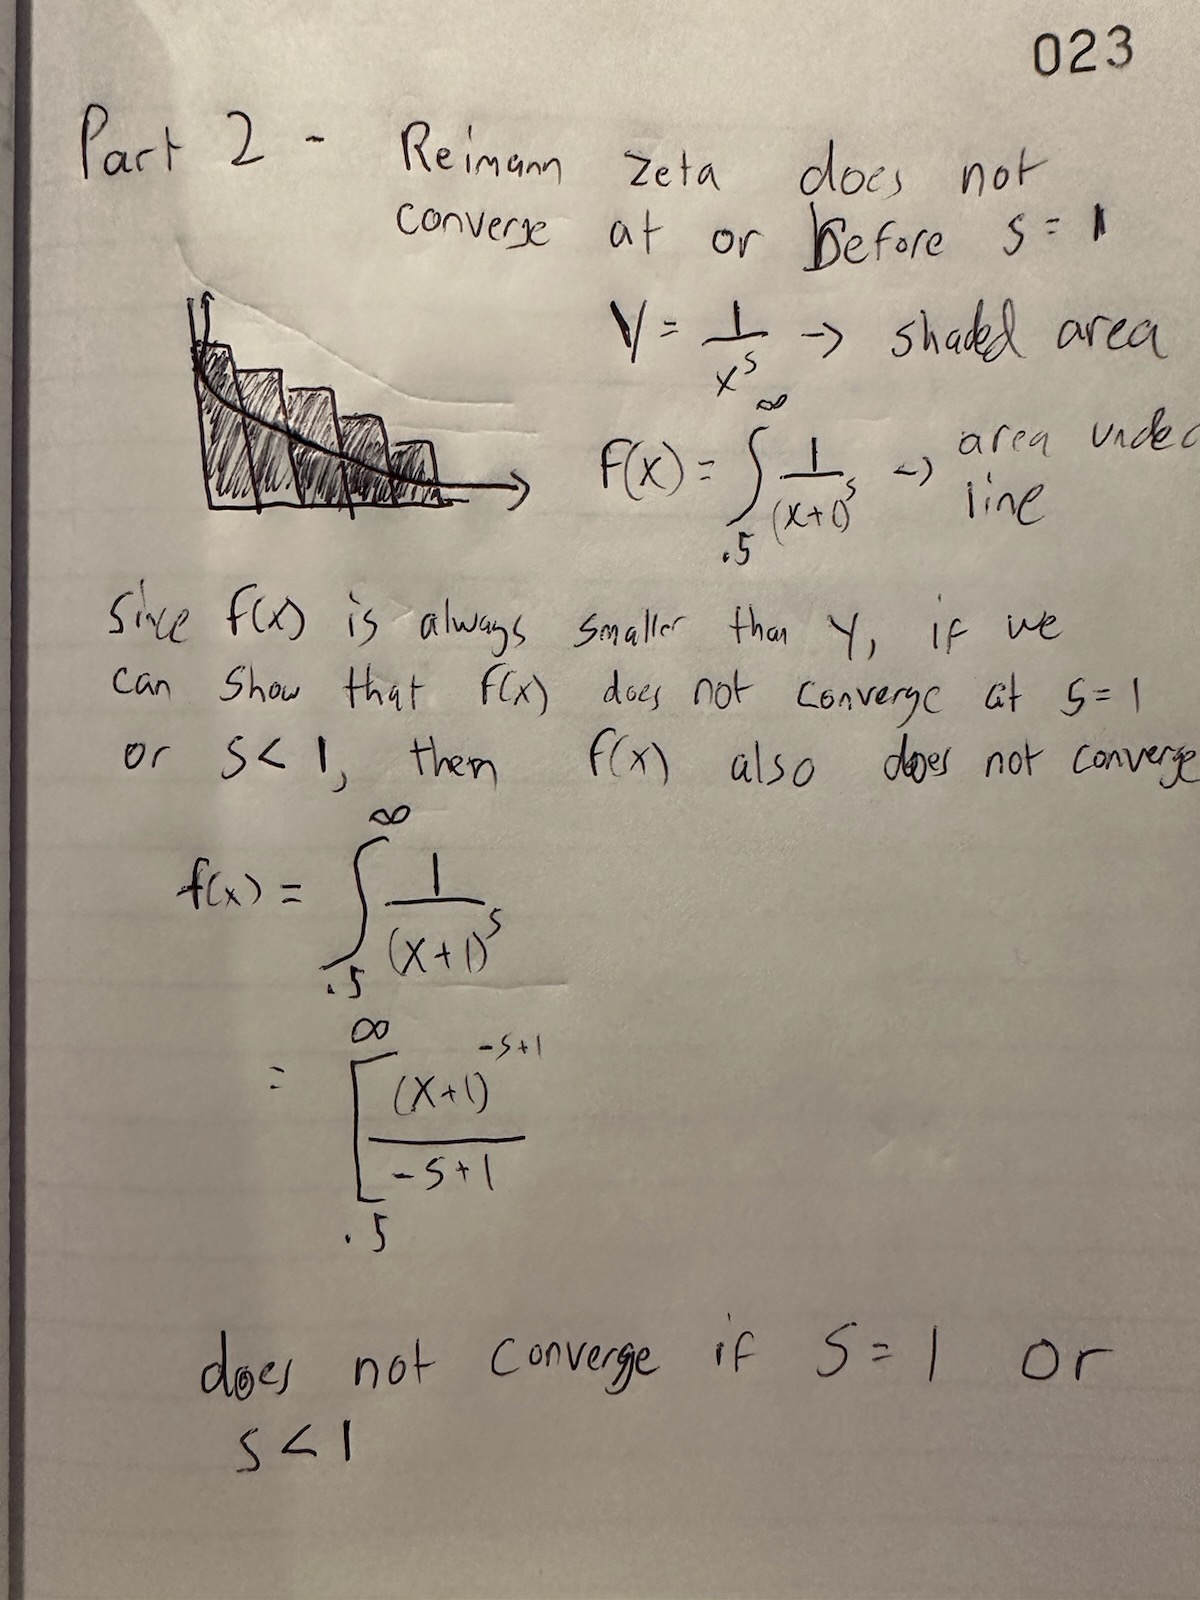 023
Part 2 - Reimann zeta does not
converge at or Before s = 1
Y = 1/x^s -> shaded area
f(x) = ∫_.5^∞ 1/(x+1)^s -> area under
line
Since f(x) is always smaller than Y, if we
can show that f(x) does not converge at s=1
or s< 1, then f(x) also does not converge
f(x) = ∫_.5^∞ 1/(x+1)^s
= [(x+1)^(-s+1)/(-s+1)]_.5^∞
does not converge if s = 1 or
s < 1